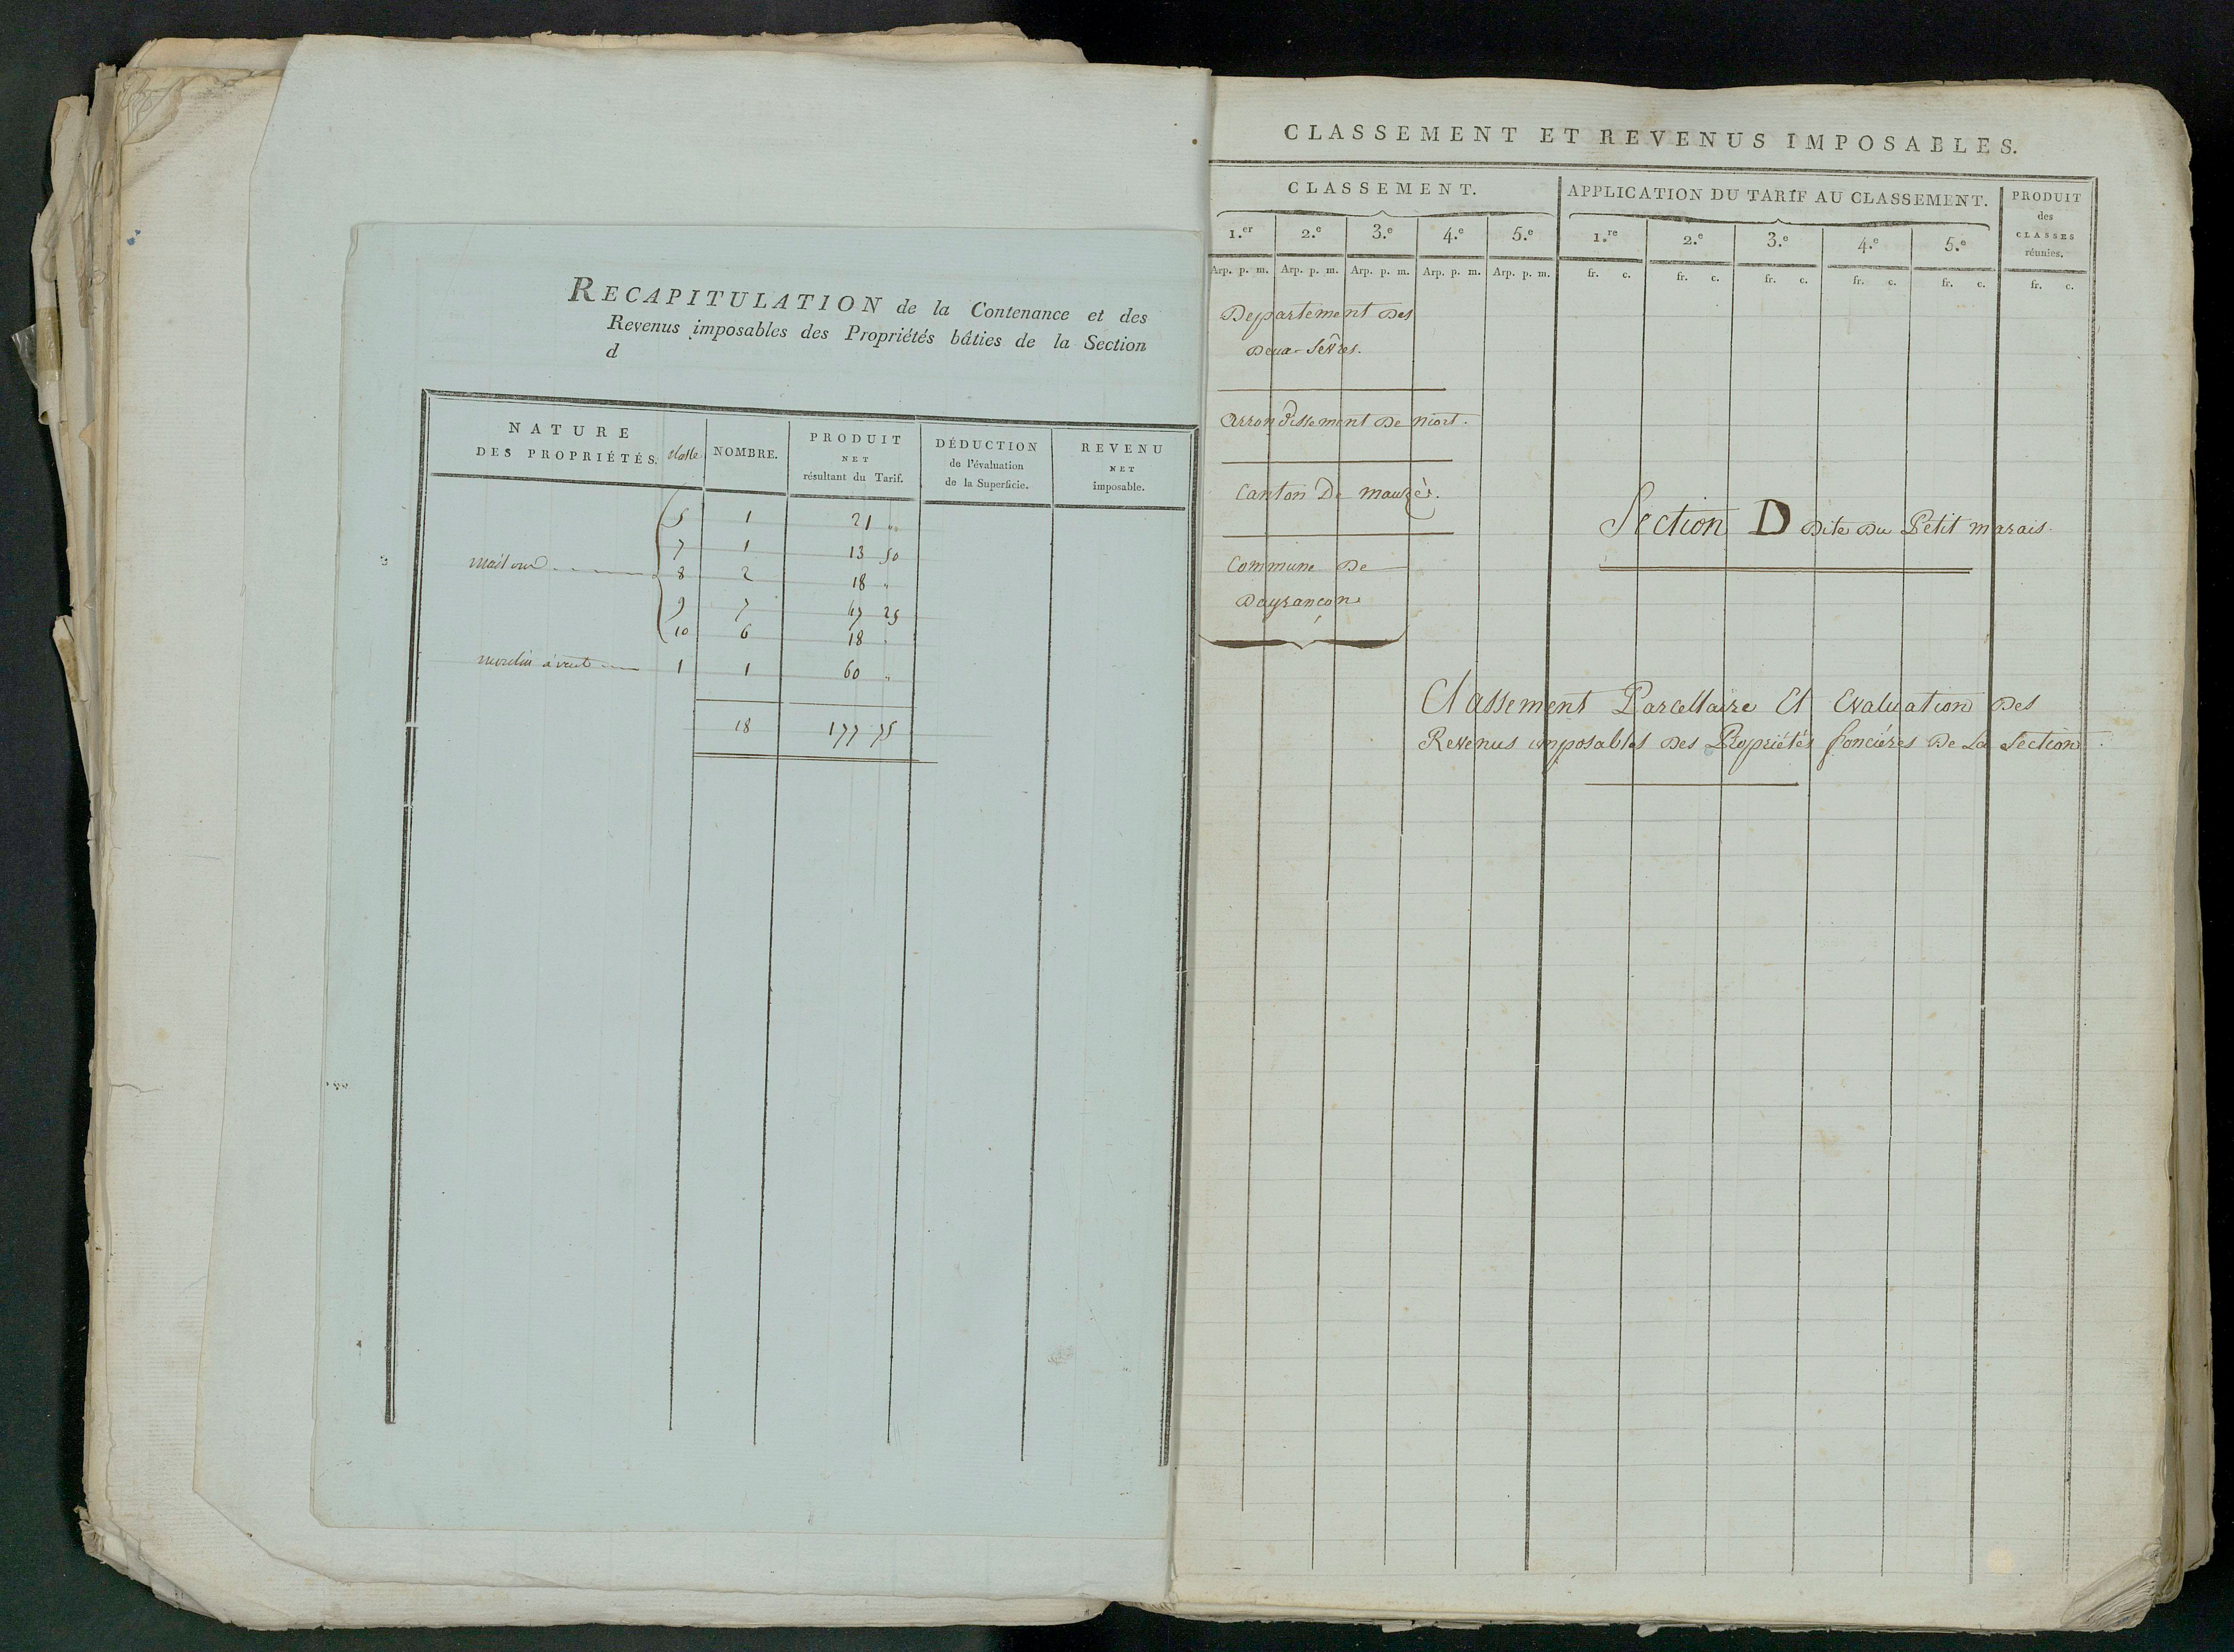 RECAPITULATION de la Contenance et des
Revenus imposables des Propriétés bâties de la Section
d
NATURE
DES PROPRIÉTÉS. classe
NOMBRE.
PRODUIT
NET
résultant du Tarif.
DÉDUCTION
de l'évaluation
de la Superficie.
REVENU
NET
imposable.
5 1 21 "
7 1 13 50
maison 8 2 18 "
9 7 47 25
10 6 18 "
moulin à vent 1 1 60 "
18 177 75
CLASSEMENT ET REVENUS IMPOSABLES.
CLASSEMENT.
1.er 2.e 3.e 4.e 5.e
Arp. p. m. Arp. p. m. Arp. p. m. Arp. p. m. Arp. p. m.
APPLICATION DU TARIF AU CLASSEMENT.
1.re 2.e 3.e 4.e 5.e
fr. c. fr. c. fr. c. fr. c. fr. c.
PRODUIT
des
CLASSES
réunies.
fr. c.
Departement Des
Deux-Sèvres.
Arrondissement De niort.
Canton De mauzé.
Commune De
Deyrançon
Section D Dite Du Petit marais.
Classement Parcellaire Et Evaluation Des
Revenus imposables Des Propriétés foncières De La Section.